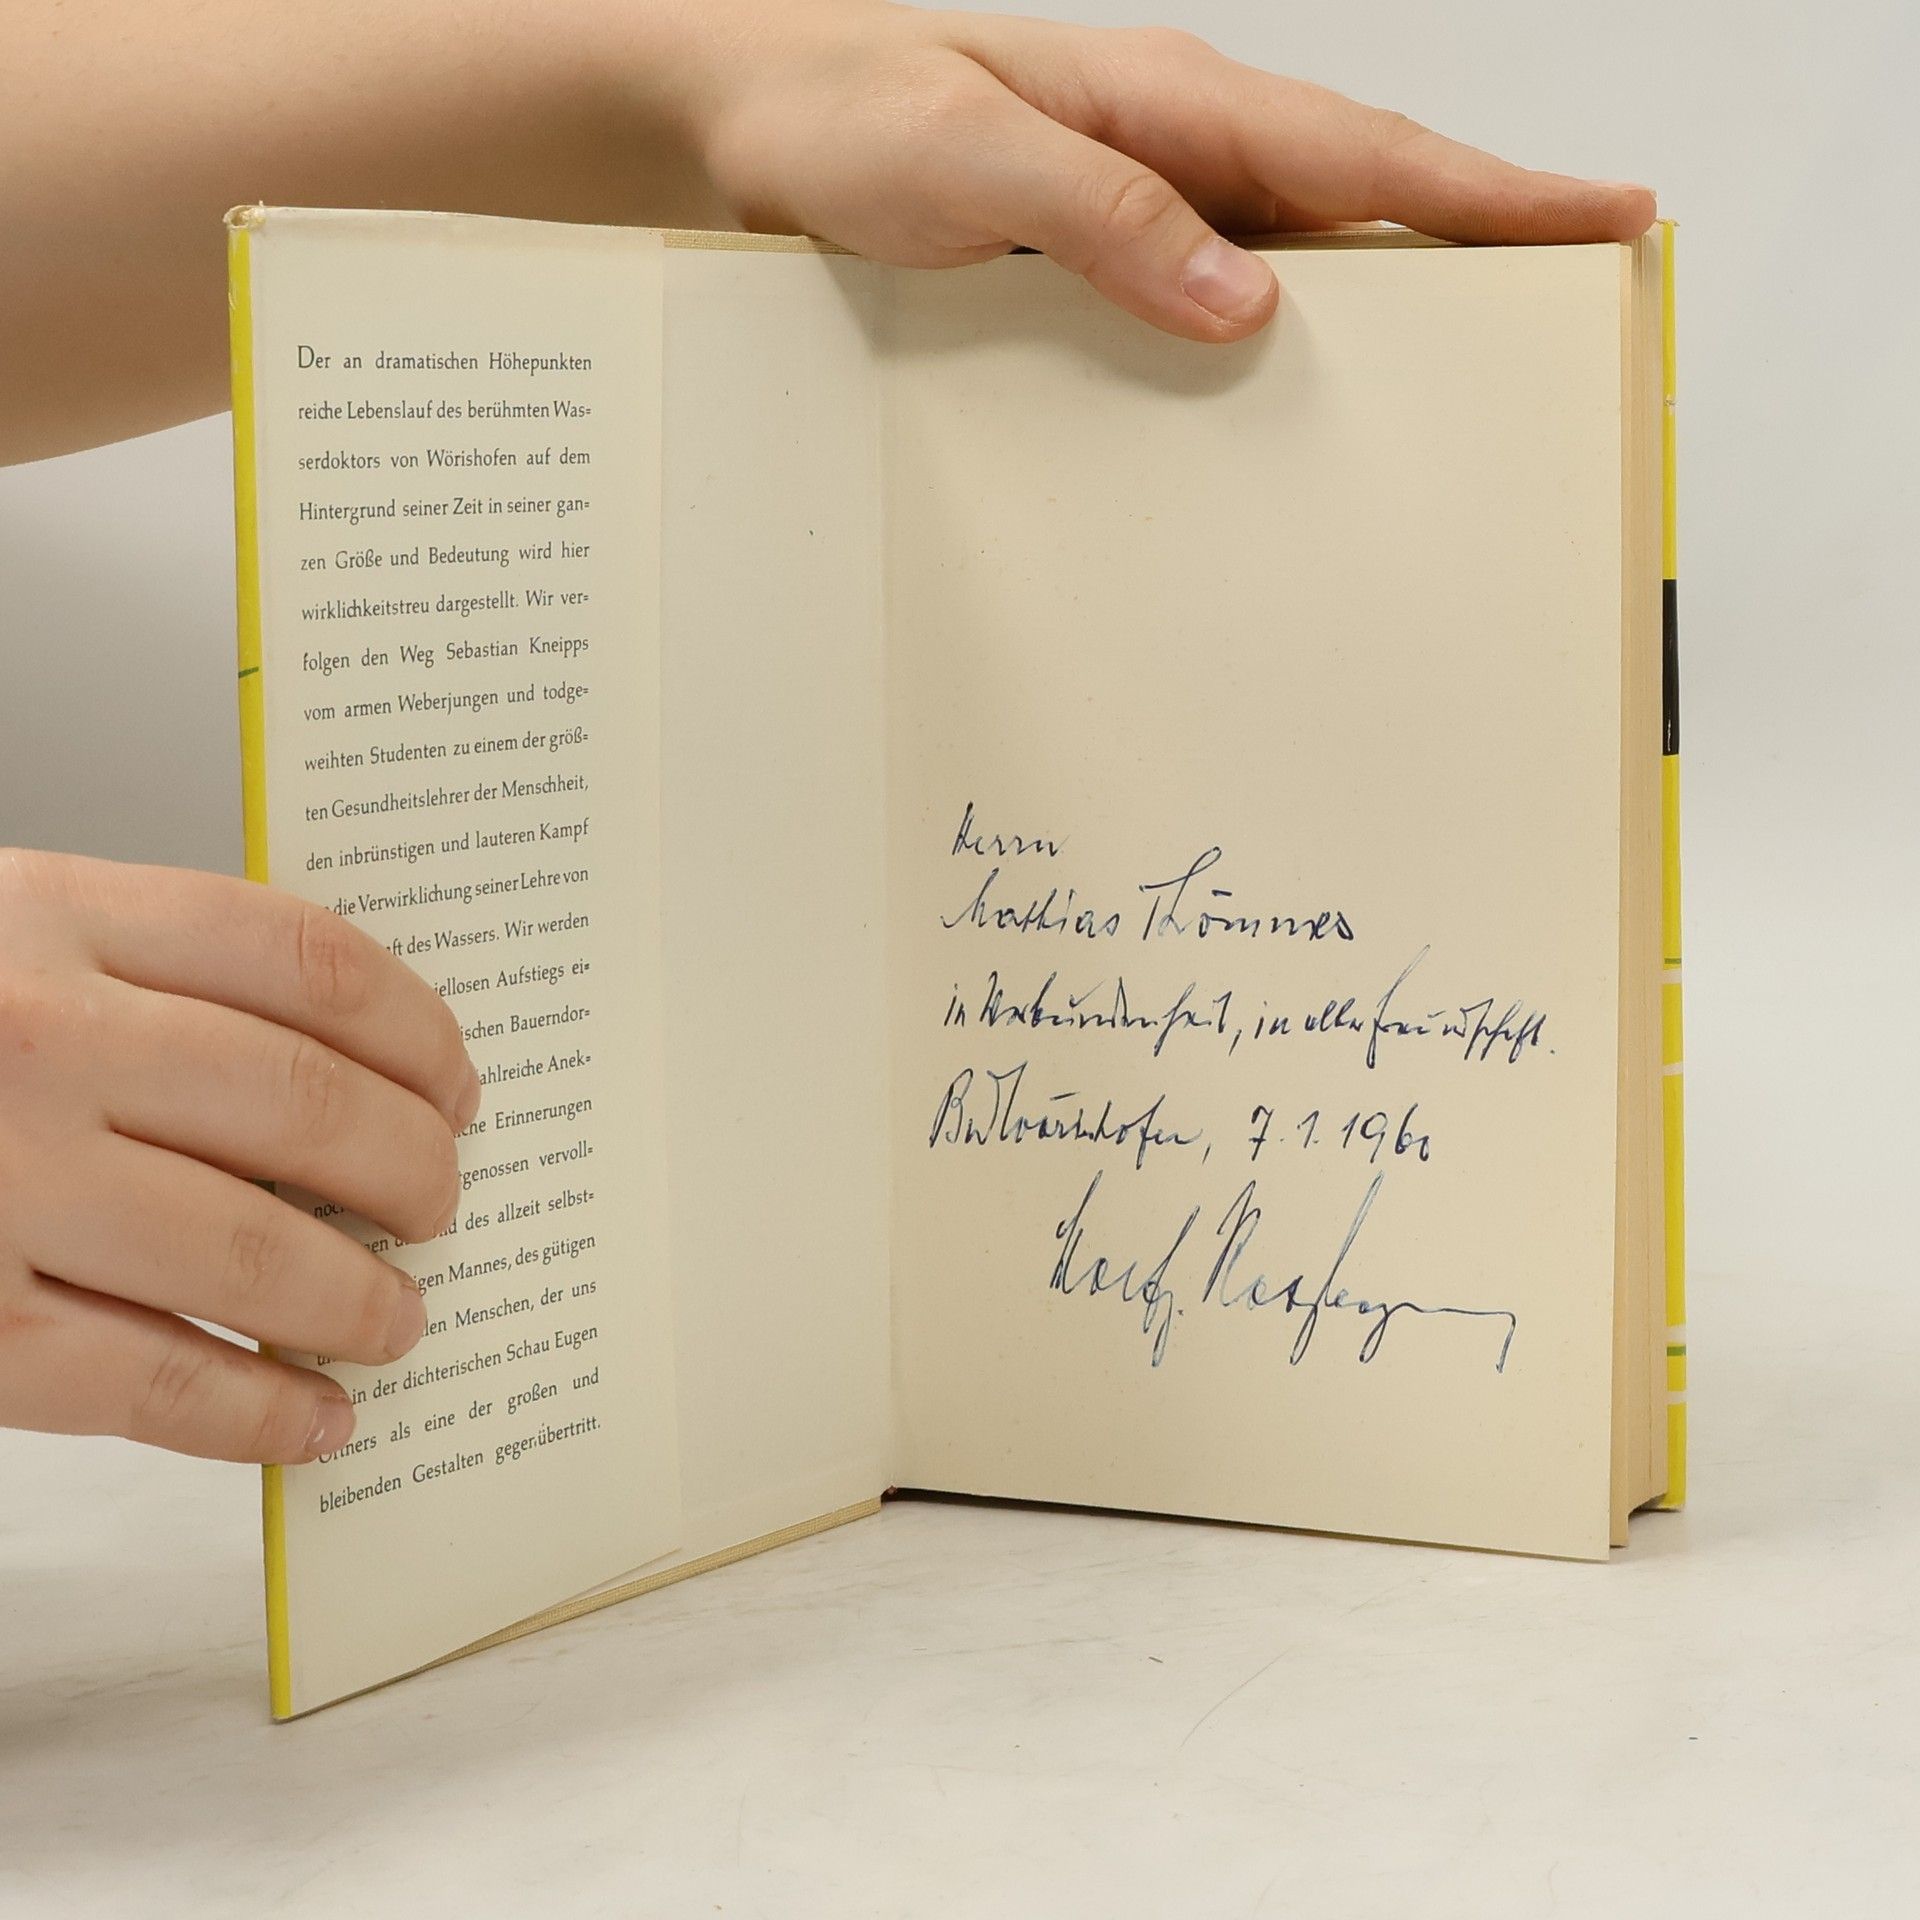 Der an dramatischen Höhepunkten
reiche Lebenslauf des berühmten Was=
serdoktors von Wörishofen auf dem
Hintergrund seiner Zeit in seiner gan=
zen Größe und Bedeutung wird hier
wirklichkeitstreu dargestellt. Wir ver=
folgen den Weg Sebastian Kneipps
vom armen Weberjungen und todge=
weihten Studenten zu einem der größ=
ten Gesundheitslehrer der Menschheit,
den inbrünstigen und lauteren Kampf
die Verwirklichung seiner Lehre von
des Wassers. Wir werden
Aufstiegs ei=
Bauerndor=
Anek=
Erinnerungen
vervoll=
des allzeit selbst=
Mannes, des gütigen
Menschen, der uns
in der dichterischen Schau Eugen
als eine der großen und
bleibenden Gestalten gegenübertritt.
Herrn
Mathias Thömmes
in Verbundenheit, in aller Freundschaft.
Bad Wörishofen, 7.1.1960